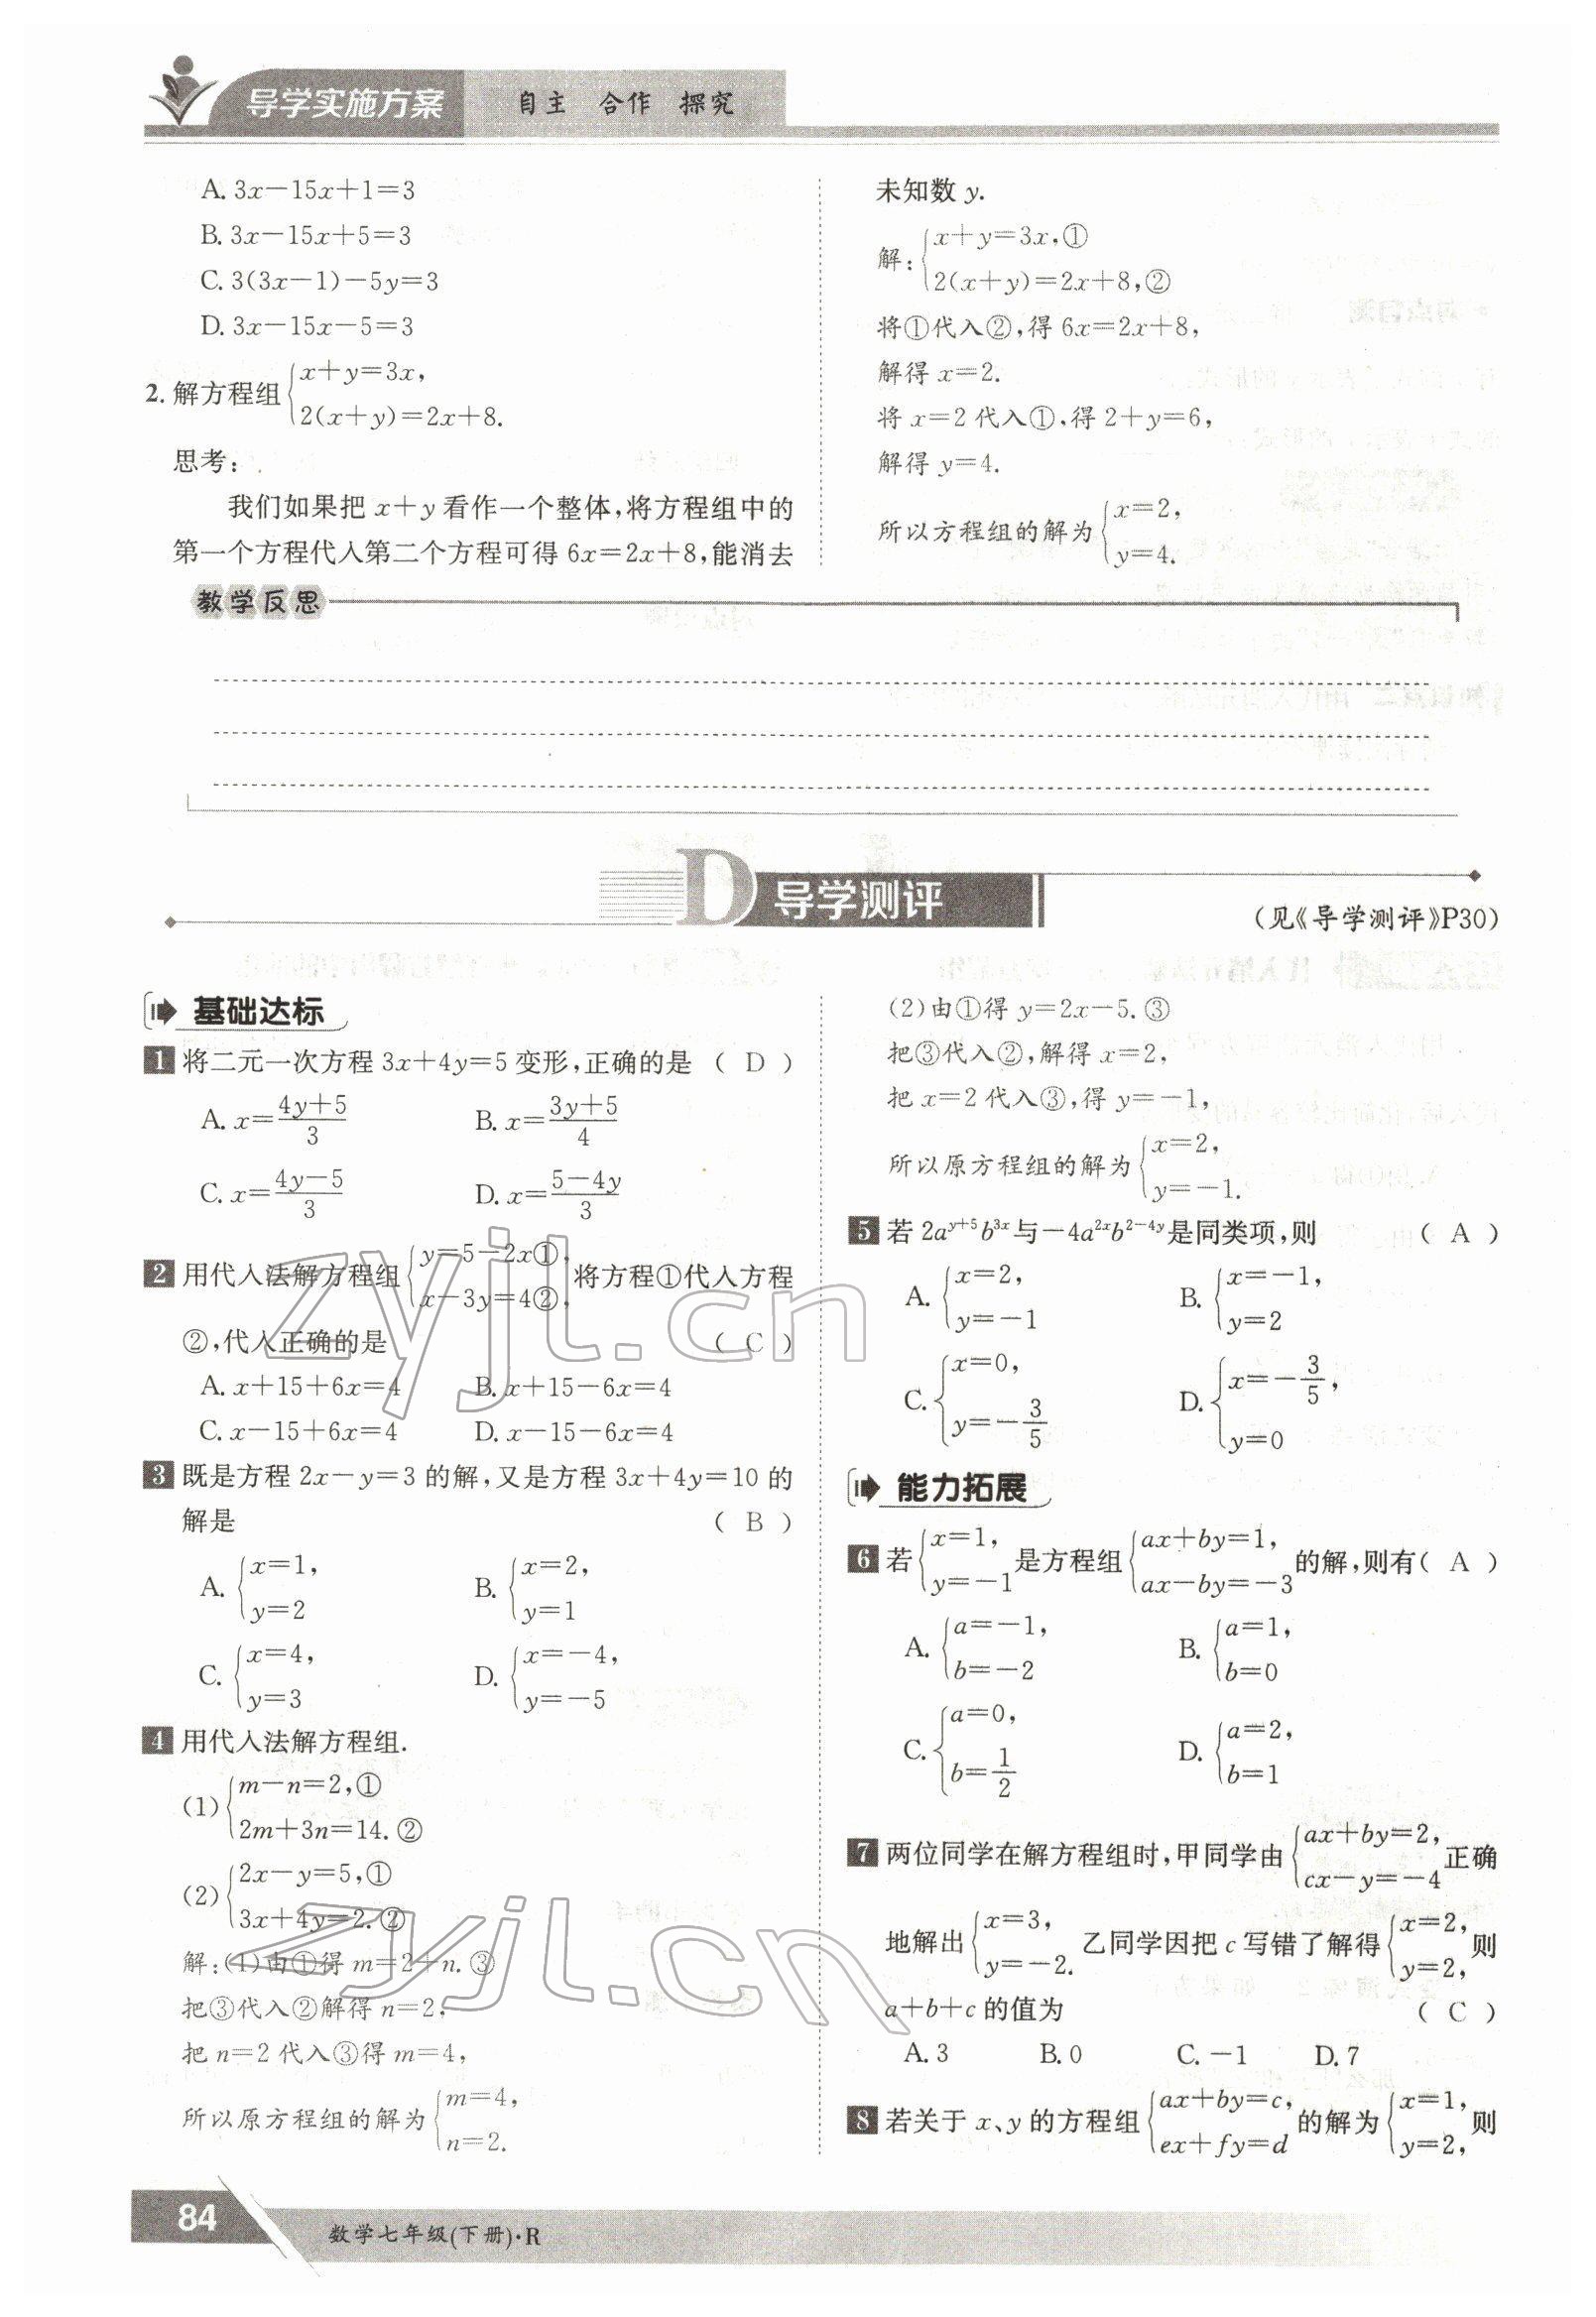 导学实施方案 自主 合作 探究
A. 3x－15x＋1＝3
B. 3x－15x＋5＝3
C. 3(3x－1)－5y＝3
D. 3x－15x－5＝3
2. 解方程组{x＋y＝3x,
2(x＋y)＝2x＋8.
思考:
我们如果把 x＋y 看作一个整体,将方程组中的
第一个方程代入第二个方程可得 6x＝2x＋8,能消去
未知数 y.
解:{x＋y＝3x,①
2(x＋y)＝2x＋8,②
将①代入②,得 6x＝2x＋8,
解得 x＝2.
将 x＝2 代入①,得 2＋y＝6,
解得 y＝4.
所以方程组的解为{x＝2,
y＝4.
教学反思
D 导学测评
(见《导学测评》P30)
基础达标
1 将二元一次方程 3x＋4y＝5 变形,正确的是 ( D )
A. x＝(4y＋5)/3 B. x＝(3y＋5)/4
C. x＝(4y－5)/3 D. x＝(5－4y)/3
2 用代入法解方程组{y＝5－2x①,
x－3y＝4②, 将方程①代入方程
②,代入正确的是 ( C )
A. x＋15＋6x＝4 B. x＋15－6x＝4
C. x－15＋6x＝4 D. x－15－6x＝4
3 既是方程 2x－y＝3 的解,又是方程 3x＋4y＝10 的
解是 ( B )
A. {x＝1,
y＝2
B. {x＝2,
y＝1
C. {x＝4,
y＝3
D. {x＝－4,
y＝－5
4 用代入法解方程组.
(1){m－n＝2,①
2m＋3n＝14.②
(2){2x－y＝5,①
3x＋4y＝2.②
解:(1)由①得 m＝2＋n.③
把③代入②解得 n＝2,
把 n＝2 代入③得 m＝4,
所以原方程组的解为{m＝4,
n＝2.
(2)由①得 y＝2x－5.③
把③代入②,解得 x＝2,
把 x＝2 代入③,得 y＝－1,
所以原方程组的解为{x＝2,
y＝－1.
5 若 2a^(y＋5)b^(3x)与－4a^(2x)b^(2－4y)是同类项,则 ( A )
A. {x＝2,
y＝－1
B. {x＝－1,
y＝2
C. {x＝0,
y＝－3/5
D. {x＝－3/5,
y＝0
能力拓展
6 若{x＝1,
y＝－1 是方程组{ax＋by＝1,
ax－by＝－3 的解,则有( A )
A. {a＝－1,
b＝－2
B. {a＝1,
b＝0
C. {a＝0,
b＝1/2
D. {a＝2,
b＝1
7 两位同学在解方程组时,甲同学由{ax＋by＝2,
cx－y＝－4 正确
地解出{x＝3,
y＝－2. 乙同学因把 c 写错了解得{x＝2,
y＝2, 则
a＋b＋c 的值为 ( C )
A. 3 B. 0 C. －1 D. 7
8 若关于 x、y 的方程组{ax＋by＝c,
ex＋fy＝d 的解为{x＝1,
y＝2, 则
84 数学七年级(下册)·R
zyjl.cn
zyjl.cn